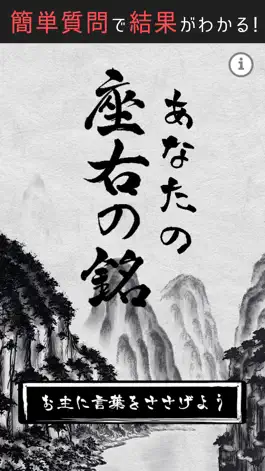 簡単質問で結果がわかる!
あなたの
座右の銘
お主に言葉をささげよう